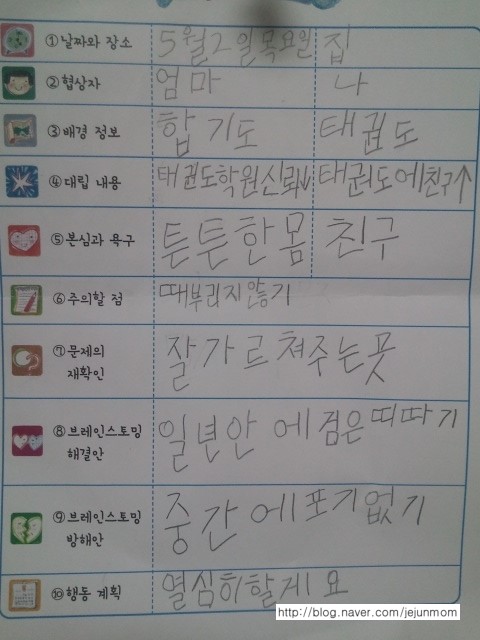 ①날짜와 장소 5월2일목요일 집
②협상자 엄마 나
③배경 정보 합기도 태권도
④대립 내용 태권도학원신뢰↓ 태권도에친구↑
⑤본심과 욕구 튼튼한몸 친구
⑥주의할 점 때부리지않기
⑦문제의 재확인 잘가르쳐주는곳
⑧브레인스토밍 해결안 일년안에검은띠따기
⑨브레인스토밍 방해안 중간에포기없기
⑩행동 계획 열심히할게요
http://blog.naver.com/jejunmom